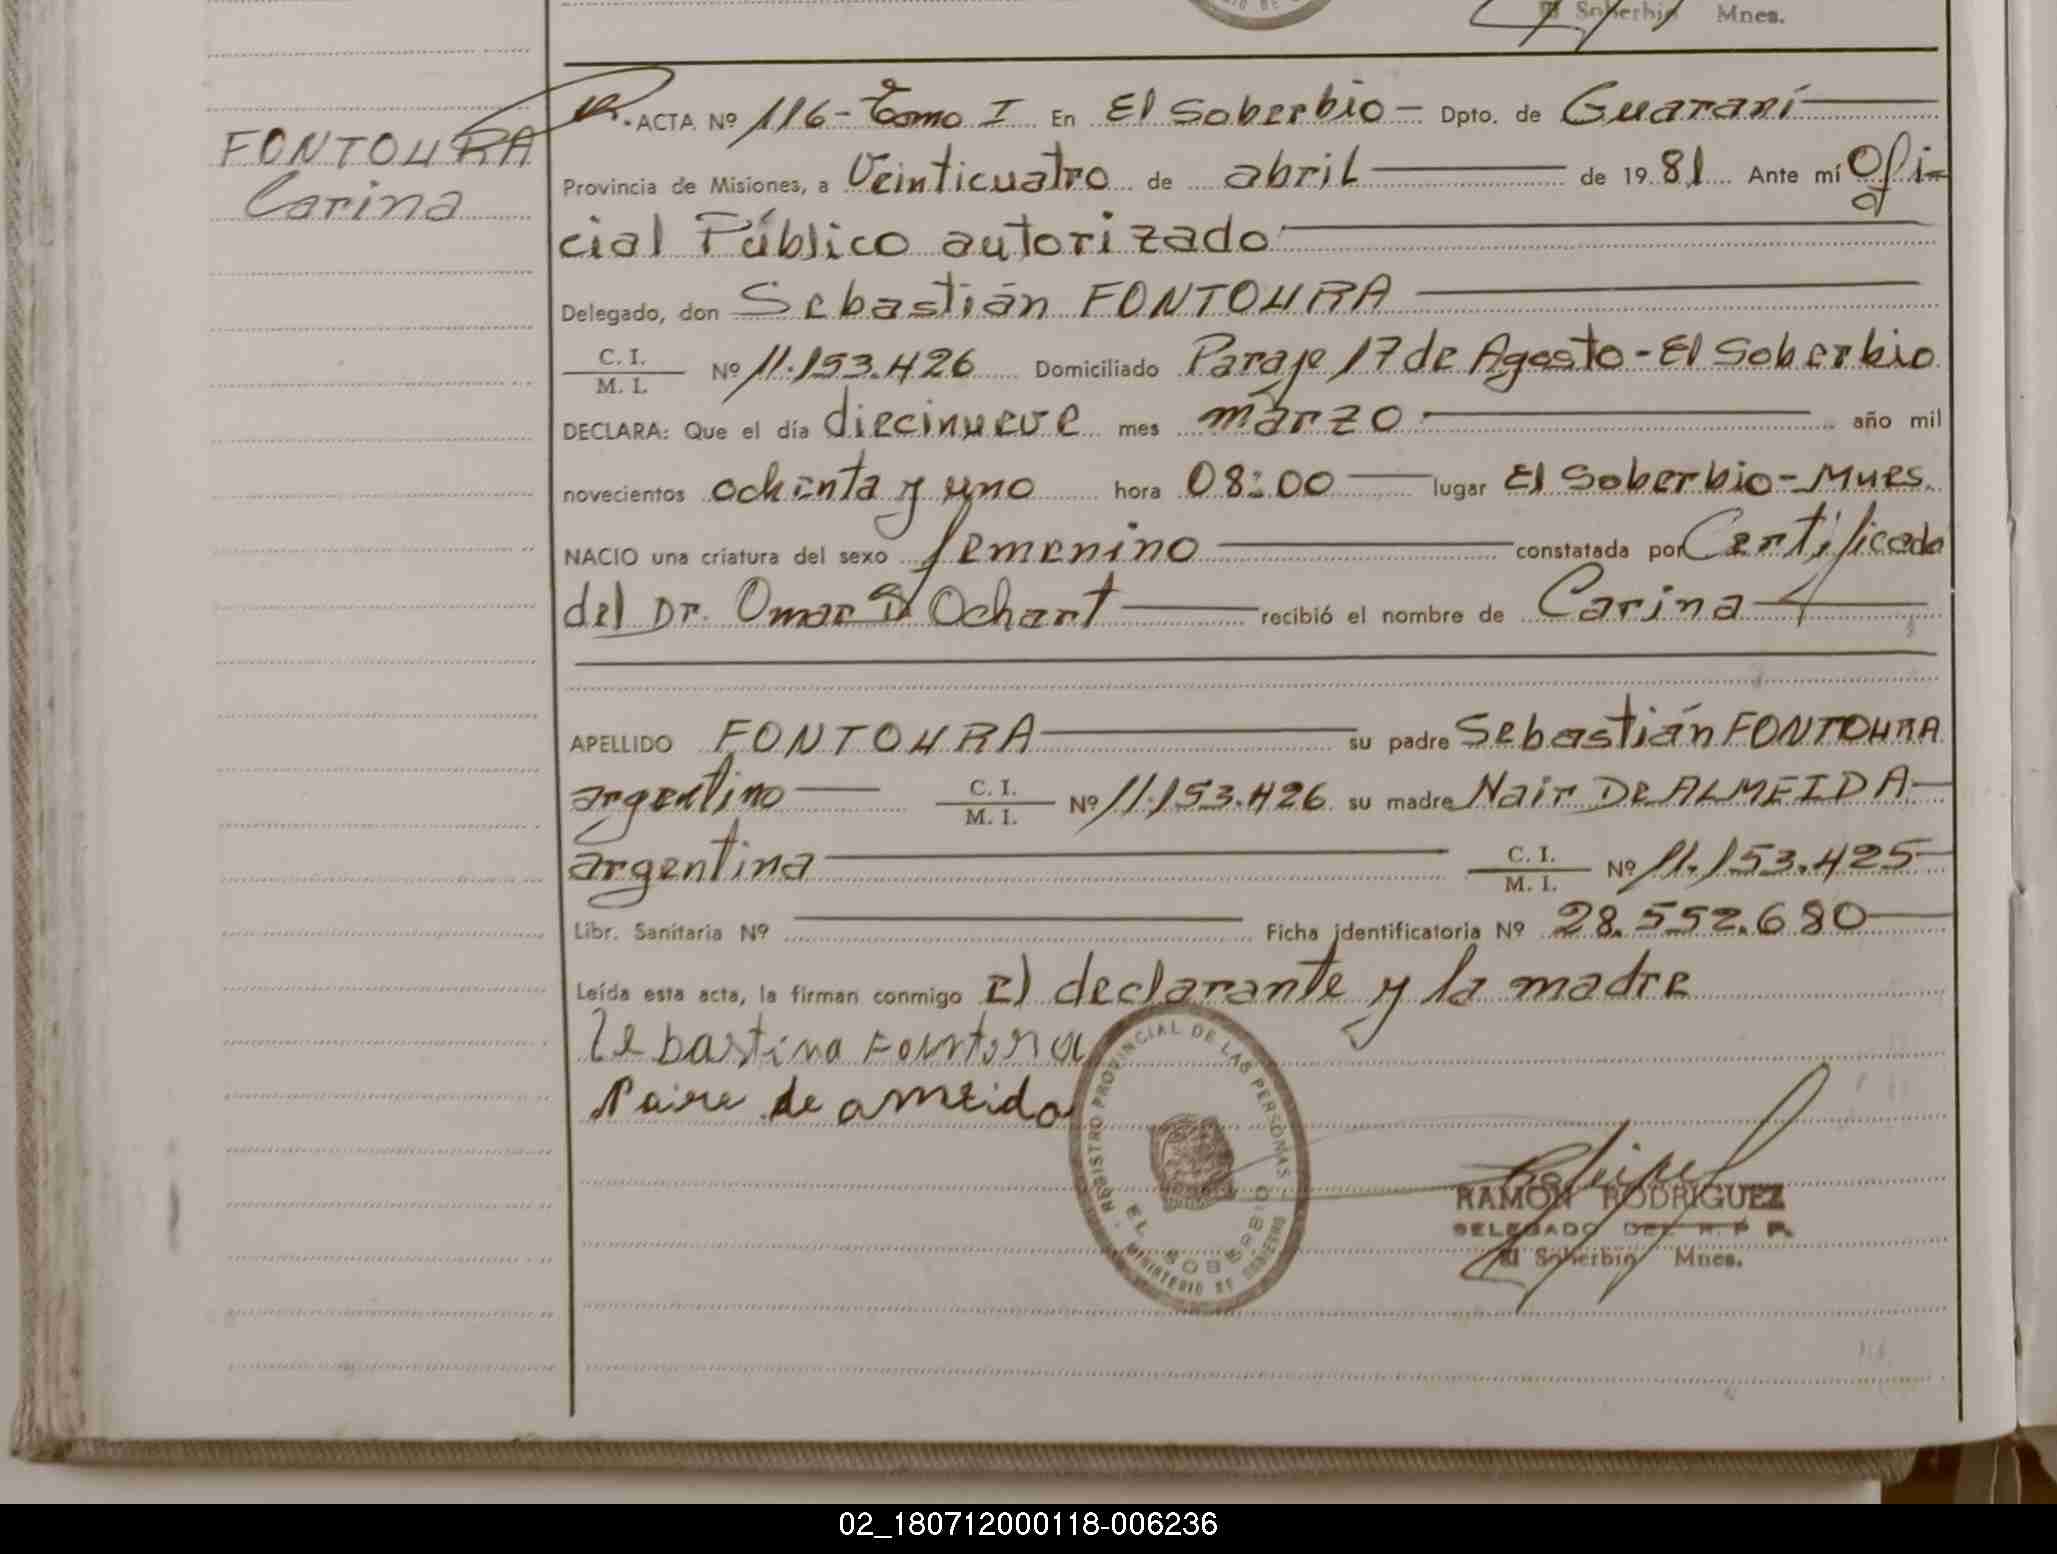 El Soberbio Mnes.
FONTOURA
Carina
ACTA Nº 116 - Tomo I En El Soberbio - Dpto. de Guaraní
Provincia de Misiones, a Veinticuatro de abril de 1981 Ante mí Ofi-
cial Público autorizado
Delegado, don Sebastián FONTOURA
C. I.
M. I. Nº 11.153.426 Domiciliado Paraje 17 de Agosto - El Soberbio
DECLARA: Que el día diecinueve mes marzo año mil
novecientos ochenta y uno hora 08:00 lugar El Soberbio - Mnes.
NACIO una criatura del sexo femenino constatada por Certificado
del Dr. Omar D Ochart recibió el nombre de Carina
APELLIDO FONTOURA su padre Sebastián FONTOURA
argentino C. I. M. I. Nº 11.153.426 su madre Nair DE ALMEIDA
argentina C. I. M. I. Nº 11.153.425
Libr. Sanitaria Nº Ficha identificatoria Nº 28.552.680
Leída esta acta, la firman conmigo El declarante y la madre
Sebastina Fontora
Naire de ameida
REGISTRO PROVINCIAL DE LAS PERSONAS
EL SOBERBIO
MINISTERIO DE GOBIERNO
RAMON RODRIGUEZ
DELEGADO DEL R. P. P.
El Soberbio Mnes.
02_180712000118-006236